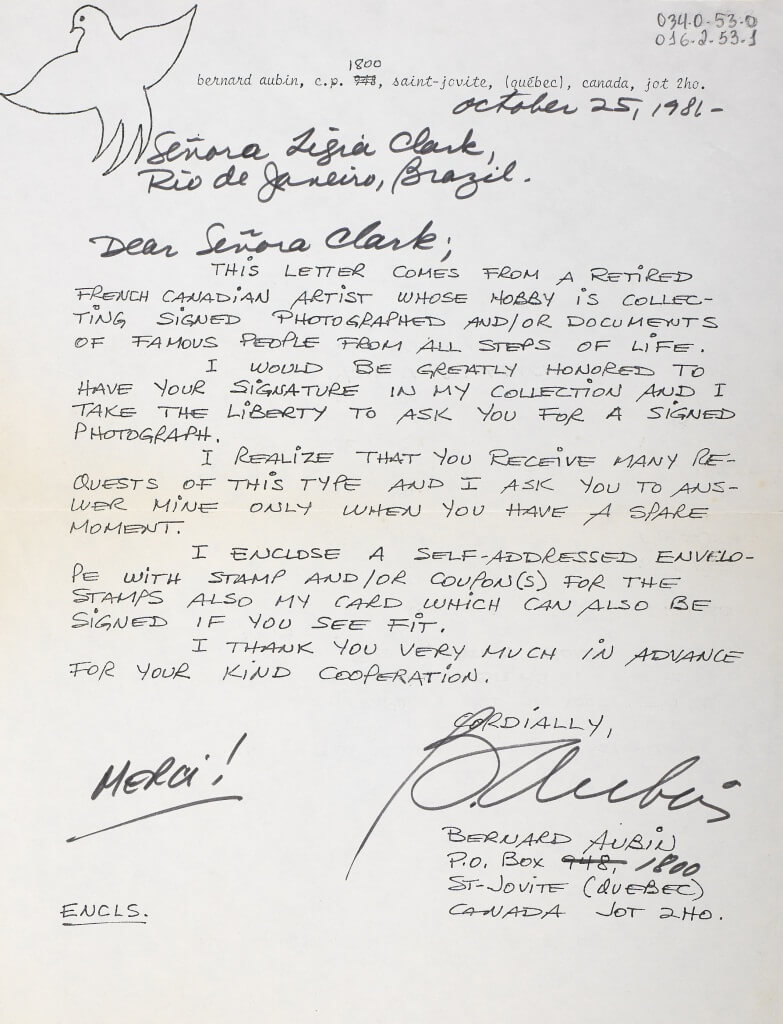 034.0-53-0
016-2-53-1
1800
bernard aubin, c.p. 948, saint-jovite, (québec), canada, jot 2ho.
October 25, 1981-
Señora Ligia Clark,
Rio de Janeiro, Brazil.
Dear Señora Clark;
THIS LETTER COMES FROM A RETIRED
FRENCH CANADIAN ARTIST WHOSE HOBBY IS COLLEC-
TING SIGNED PHOTOGRAPHED AND/OR DOCUMENTS
OF FAMOUS PEOPLE FROM ALL STEPS OF LIFE.
I WOULD BE GREATLY HONORED TO
HAVE YOUR SIGNATURE IN MY COLLECTION AND I
TAKE THE LIBERTY TO ASK YOU FOR A SIGNED
PHOTOGRAPH.
I REALIZE THAT YOU RECEIVE MANY RE-
QUESTS OF THIS TYPE AND I ASK YOU TO ANS-
WER MINE ONLY WHEN YOU HAVE A SPARE
MOMENT.
I ENCLOSE A SELF-ADDRESSED ENVELO-
PE WITH STAMP AND/OR COUPON(S) FOR THE
STAMPS ALSO MY CARD WHICH CAN ALSO BE
SIGNED IF YOU SEE FIT.
I THANK YOU VERY MUCH IN ADVANCE
FOR YOUR KIND COOPERATION.
CORDIALLY,
Merci!
B. Aubin
BERNARD AUBIN
P.O. BOX 948, 1800
ST-JOVITE (QUEBEC)
ENCLS.
CANADA JOT 2HO.